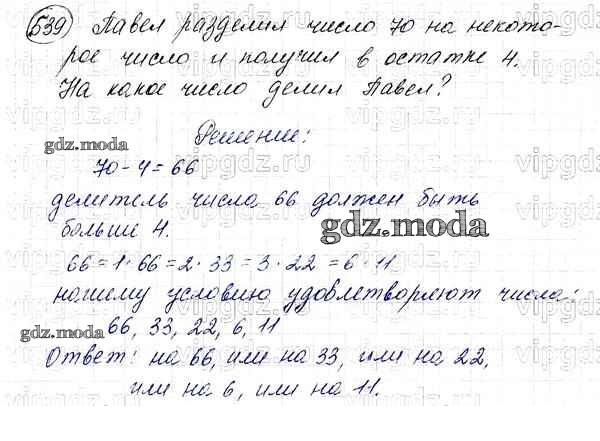 539) Павел разделил число 70 на некото-
рое число и получил в остатке 4.
На какое число делил Павел?
Решение:
gdz.moda
70-4=66
делитель числа 66 должен быть
больше 4.
gdz.moda
66=1·66=2·33=3·22=6·11
нашему условию удовлетворяют числа:
66, 33, 22, 6, 11
gdz.moda
Ответ: на 66, или на 33, или на 22,
или на 6, или на 11.